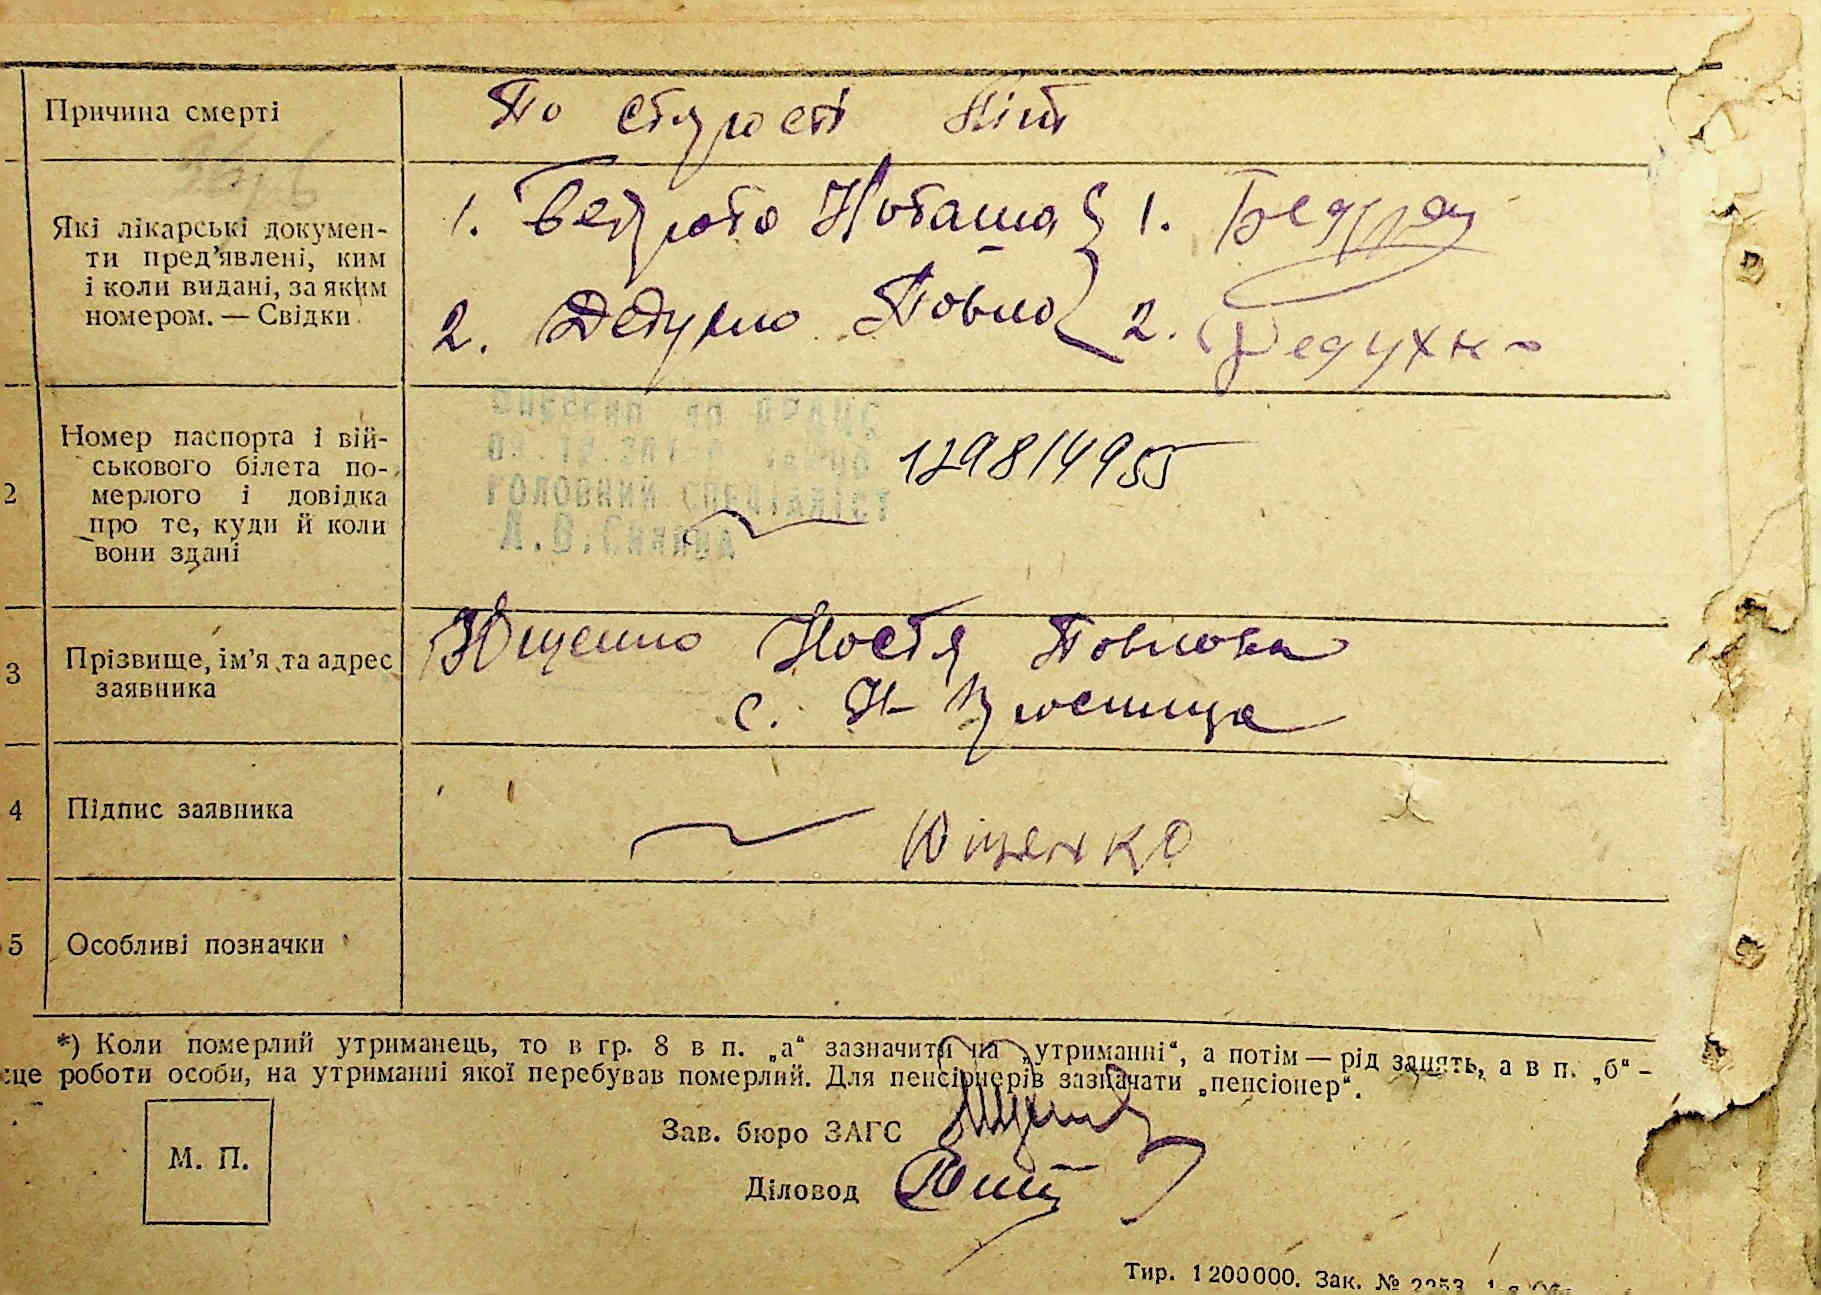 Причина смерті
По старості літ
Які лікарські докумен-
ти пред'явлені, ким
і коли видані, за яким
номером. — Свідки
1. Наташа 1.
2. Павло 2.
2
Номер паспорта і вій-
ськового білета по-
мерлого і довідка
про те, куди й коли
вони здані
ГОЛОВНИЙ СПЕЦІАЛІСТ
129814955
3
Прізвище, ім'я та адрес
заявника
Ющенко Настя Павловна
с. Н-
4
Підпис заявника
Ющенко
5
Особливі позначки
*) Коли померлий утриманець, то в гр. 8 в п. „а“ зазначити на „утриманні“, а потім — рід занять, а в п. „б“ –
сце роботи особи, на утриманні якої перебував померлий. Для пенсіонерів зазначати „пенсіонер“.
М. П.
Зав. бюро ЗАГС
Діловод
Тир. 1200000. Зак. № 2253